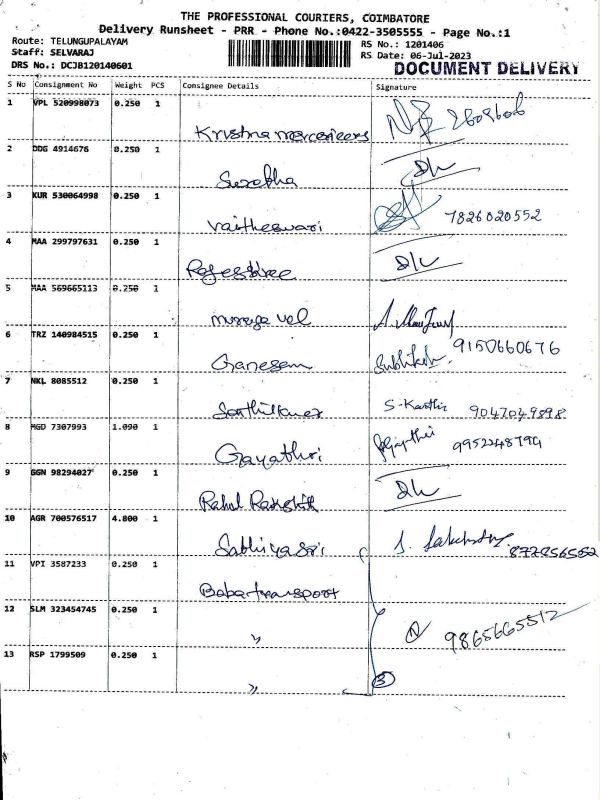 THE PROFESSIONAL COURIERS, COIMBATORE
Delivery Runsheet - PRR - Phone No.:0422-3505555 - Page No.:1
Route: TELUNGUPALAYAM
RS No.: 1201406
Staff: SELVARAJ
RS Date: 06-Jul-2023
DRS No.: DCJB120140601
DOCUMENT DELIVERY
S No Consignment No Weight PCS Consignee Details Signature
1 VPL 520998073 0.250 1
2 DDG 4914676 0.250 1
3 KUR 530064998 0.250 1
vaitheswari 7826020552
4 MAA 299797631 0.250 1
5 MAA 569665113 0.250 1
6 TRZ 140984515 0.250 1
Ganesan 9150660676
7 NKL 8085512 0.250 1
S-Karthi 9047049898
8 MGD 7307993 1.090 1
Gayathri 9952248794
9 GGN 98294027 0.250 1
Rahul Rakshit
10 AGR 700576517 4.800 1
Sathiyasri
11 VPI 3587233 0.250 1
Baba transport
12 SLM 323454745 0.250 1
" 9865665512
13 RSP 1799509 0.250 1
" 3